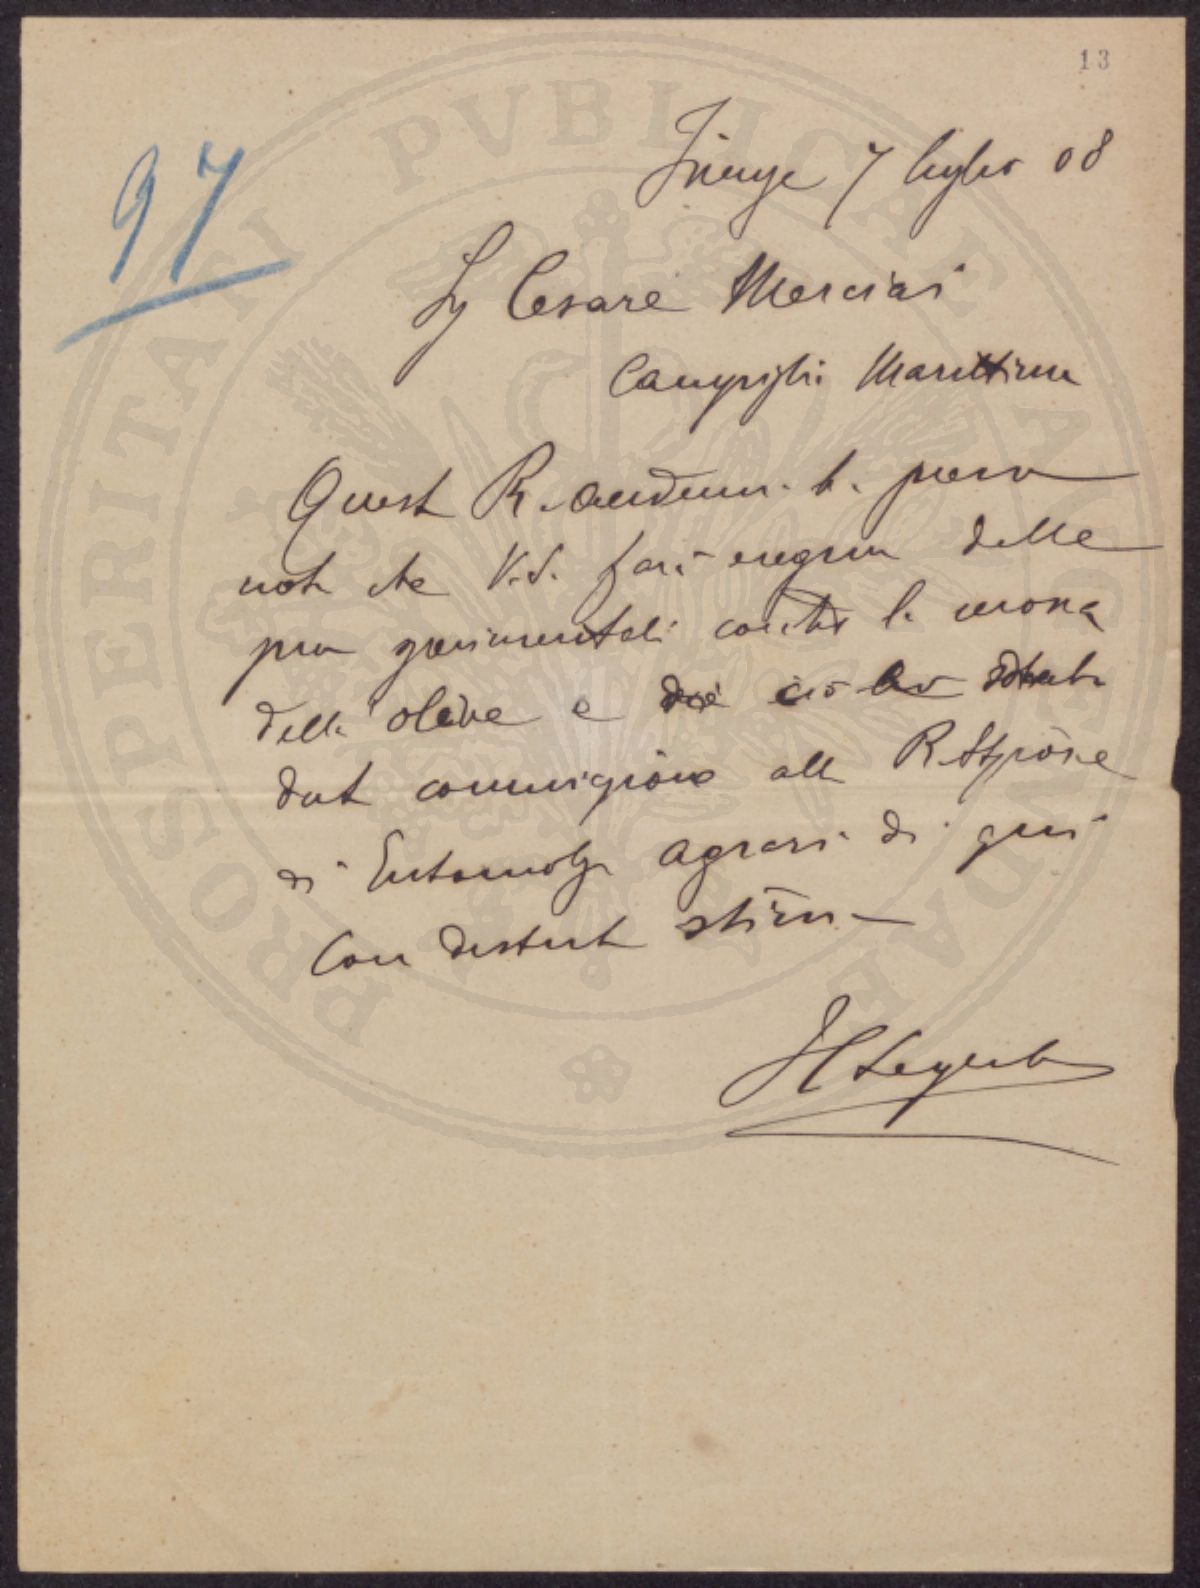 13
97
Firenze 7 luglio 08
Sig Cesare Merciai
Campiglia Marittima
Questa R. Accadem. ha preso
nota che V.S. farà eseguire delle
prove sperimentali contro la mosca
della olive e di ciò ha
dato commissione alla R. Stazione
di Entomologia agraria di qui
Con distinta stima
PROSPERITATI PVBLICAE AVGENDAE